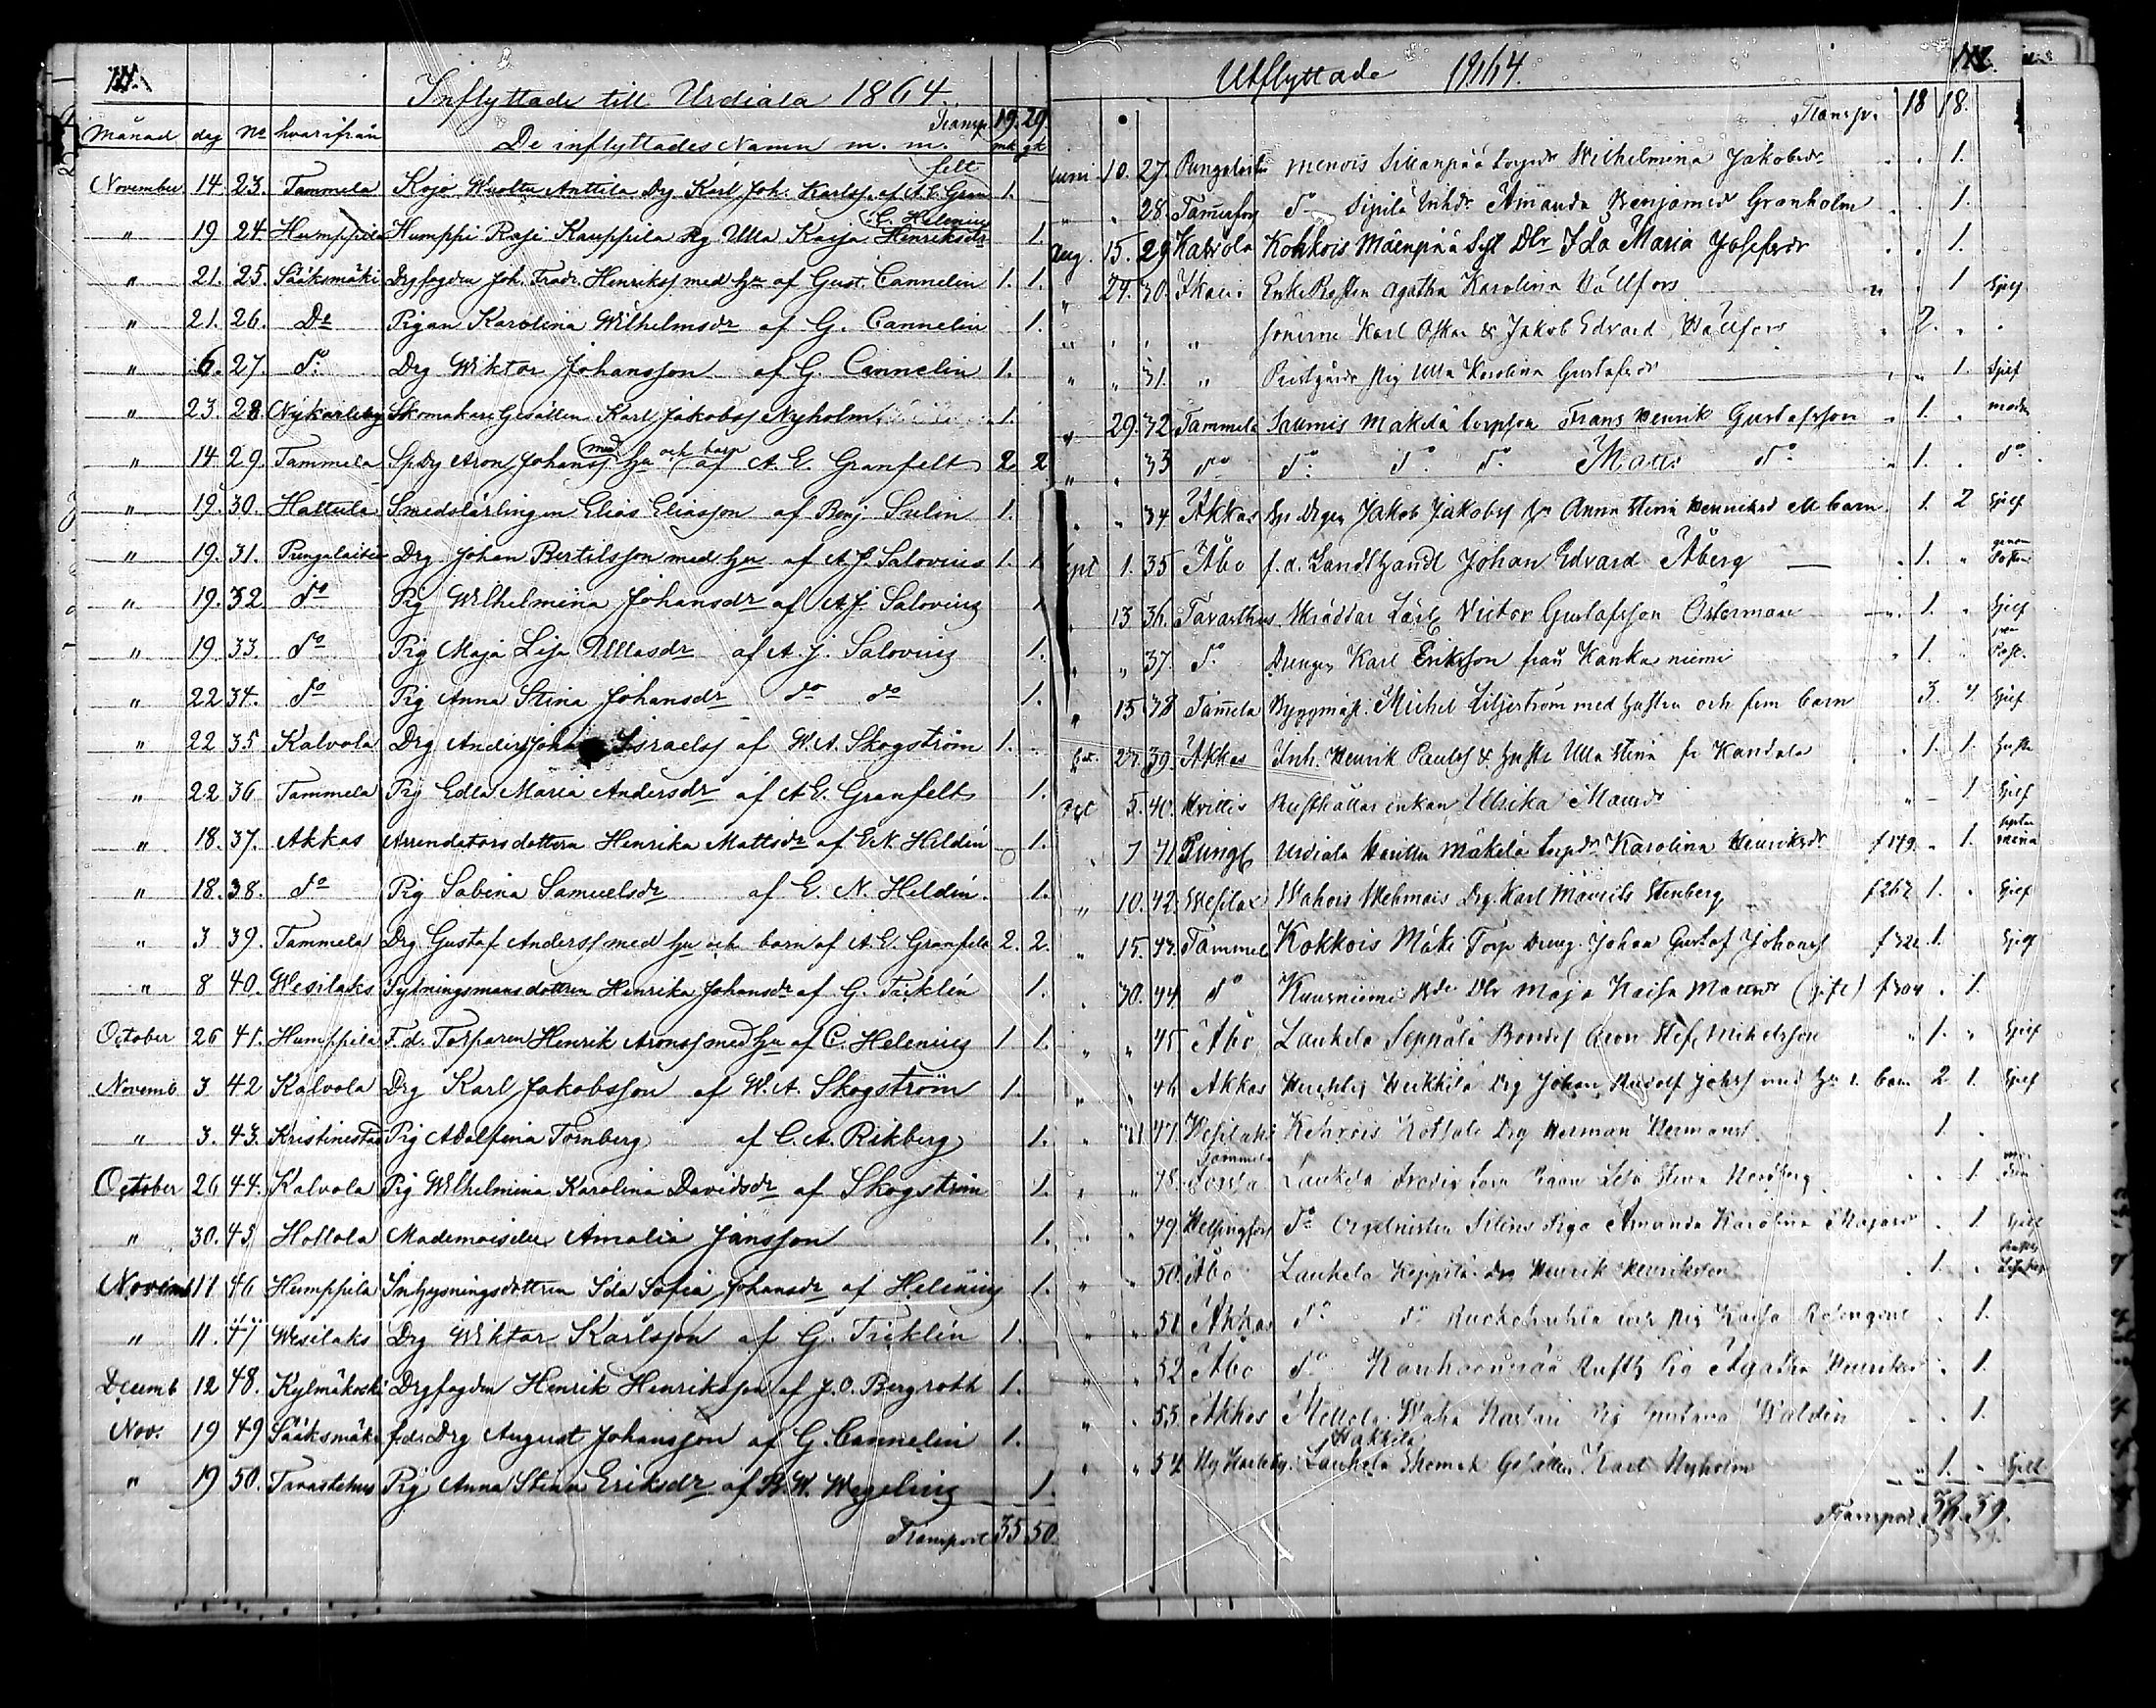 Inflyttade till Urdiala 1864.
Månad dag No hvarifrån De inflyttades Namn m. m. Transp. 19. 29
mk qk
November 14. 23. Tammela Kojo Uuoltu Anttila Drg Karl Joh. Karlss. af A. E. Granfelt 1.
" 19 24. Humppila Humppi Raji Kauppila Pig Ulla Kaisa Henriksdr C. Helenius 1.
" 21. 25. Sääksmäki Drgfogden Joh. Fredr. Henrikss med hu af Gust. Cannelin 1. 1.
" 21. 26. Do Pigan Karolina Wilhelmsdr af G. Cannelin 1.
" 6. 27. do Drg Wiktor Johansson af G. Cannelin 1.
" 23. 28. Nykarleby Skomakare Gesällen Karl Jakobss Nyholm 1.
" 14 29. Tammela Sp. Drg Aron Johanss med hu och barn af A. E. Granfelt 2. 2
" 19. 30. Hattula Smedslärlingen Elias Eliasson af Benj. Sulin 1.
" 19. 31. Pungalaitio Drg Johan Bertilsson med hu af A. J. Salovius 1. 1
" 19. 32 do Pig Wilhelmina Johansdr af A. J. Salovius 1
" 19. 33. do Pig Maja Lisa Ullasdr af A. J. Salovius 1.
" 22 34. do Pig Anna Stina Johansdr do do 1.
" 22 35 Kalvola Drg Anders Johan Israelss af W. A. Skogström 1.
" 22 36 Tammela Pig Edla Maria Andersdr af A. E. Granfelt 1.
" 18. 37. Akkas Arrendators dottern Henrika Mattsdr af E. N. Heldén 1.
" 18. 38. do Pig Sabina Samuelsdr af E. N. Heldén. 1.
" 3 39. Tammela Drg Gustaf Anderss med hu och barn af A. E. Granfelt 2. 2.
" 8 40. Wesilaks Sytningsmans dottren Henrika Johansdr af G. Ticklén 1.
October 26 41. Humppila F. d. Torparen Henrik Aronss med hu af C. Helenius 1 1.
Novemb. 3 42 Kalvola Drg Karl Jakobsson af W. A. Skogström 1.
" 3. 43. Kristinestad Pig Adolfina Tornberg af C. A. Rikberg 1.
October 26 44. Kalvola Pig Wilhelmina Karolina Davidsdr af Skogström 1.
" 30. 45 Hollola Mademoiselle Amalia Jansson 1.
Novemb 11 46 Humppila Inhysningsdottren Ida Sofia Johansdr af Helenius 1.
" 11. 47 Wesilaks Drg Wiktor Karlsson af G. Ticklén 1.
Decemb 12 48. Kylmäkoski Drgfogden Henrik Henriksson af J. O. Bergroth 1.
Nov. 19 49 Sääksmäki f.d. Drg August Johansson af G. Cannelin 1.
" 19 50. Tavastehus Pig Anna Stina Eriksdr af B. W. Wegelius 1.
Transport 35 50.
Utflyttade 1864.
Transp. 18 18.
Juni 10. 27. Pungalaitio Menois Sillanpää Torpdr Wilhelmina Jakobsdr 1.
" 28. Tammerfors do Sipilä Inhdr Amanda Benjamsdr Granholm 1.
Aug. 15. 29 Kalvola Kokkois Mäenpää Dtr Ida Maria Josefsdr 1.
" 29. 30. Ikalis Enke Agatha Karolina Wallfors 1 sjelf
" " sönerne Karl Oskar & Jakob Edvard Wallfors 2.
" " 31. " Prestgårds Pig Ulla Karolina Gustafsdr 1. sjelf
" 29. 32. Tammela Saumis Mäkelä torpson Frans Henrik Gustafsson 1. modr
" " 33 do do do do Matts do 1. do
" " 34 Akkas Sp. drgen Jakob Jakobss hu Anna Stina Henriksd m barn 1. 2 sjelf
Sept 1. 35 Åbo f. d. Johan Edvard Åberg 1. genom Posten
" 13 36. Tavasthus Skräddar Lärl Victor Gustafsson Österman 1. sjelf
" " 37. do Drengen Karl Eriksson från Kankaniemi 1. Post.
" 15. 38 Tammela Byggmäst. Michel Liljeström med hustru och fem barn 3. 4 sjelf
27. 39. Akkas Inh. Henrik Paulss & hustr Ulla Stina fr Kandala 1. 1.
Oct 5. 40. Hvittis Rusthållar enkan Ulrika Mattsdr 1 sjelf
" 7 41 Pungl Urdiala Mäkelä torpdr Karolina Henriksdr f 149 1.
" 10. 42. Wesilax Wahois Wehmais Drg Karl Mauritz Stenberg f 267 1. sjelf
" 15. 43. Tammela Kokkois Mäki Torp Dreng. Johan Gustaf Johanss f 322 1. sjelf
" 30. 44 do Kuusniemi Dtr Maja Kaisa Mattsdr (gift) f 304 1.
" " 45 Åbo Laukela Seppälä Bondes Aron Stef. Mickelsson 1. sjelf
" " 46 Akkas Heikkilä Drg Johan Rudolf Johss med hu 1. barn 2 1. sjelf
" 21 47. Wesilaks Kehrois Drg Herman Hermanss. 1.
" " 48. Tammela Forssa Laukela torp Pigan Lisa Stina Nordberg 1.
" 49. Helsingfors do Orgelnisten Piga Amanda Karolina 1 sjelf
" 50. Åbo Laukela Keppilä drg Henrik Henriksson 1.
" 51 Akkas do do torp pig Kaisa Rosengren 1.
" 52 Åbo do Rusth Pig Agatha Henriksdr 1.
" 53. Akkas Mellola Waha Pig Gustava Waldén 1.
" 54 Ny Karleby. Laukela Hakkila Skomak Gesällen Karl Nyholm 1. sjelf
Transport 38. 39.
38 39.